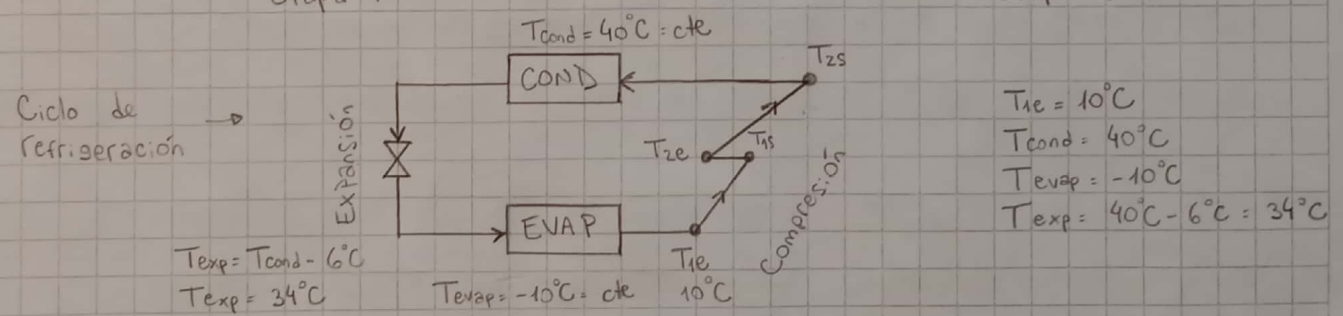 Tcond = 40°C = cte
COND
T2s
Ciclo de
refrigeración
Expansión
T2e
T1s
Compresión
EVAP
T1e
10°C
Texp = Tcond - 6°C
Texp = 34°C
Tevap = -10°C = cte
T1e = 10°C
Tcond = 40°C
Tevap = -10°C
Texp = 40°C - 6°C = 34°C